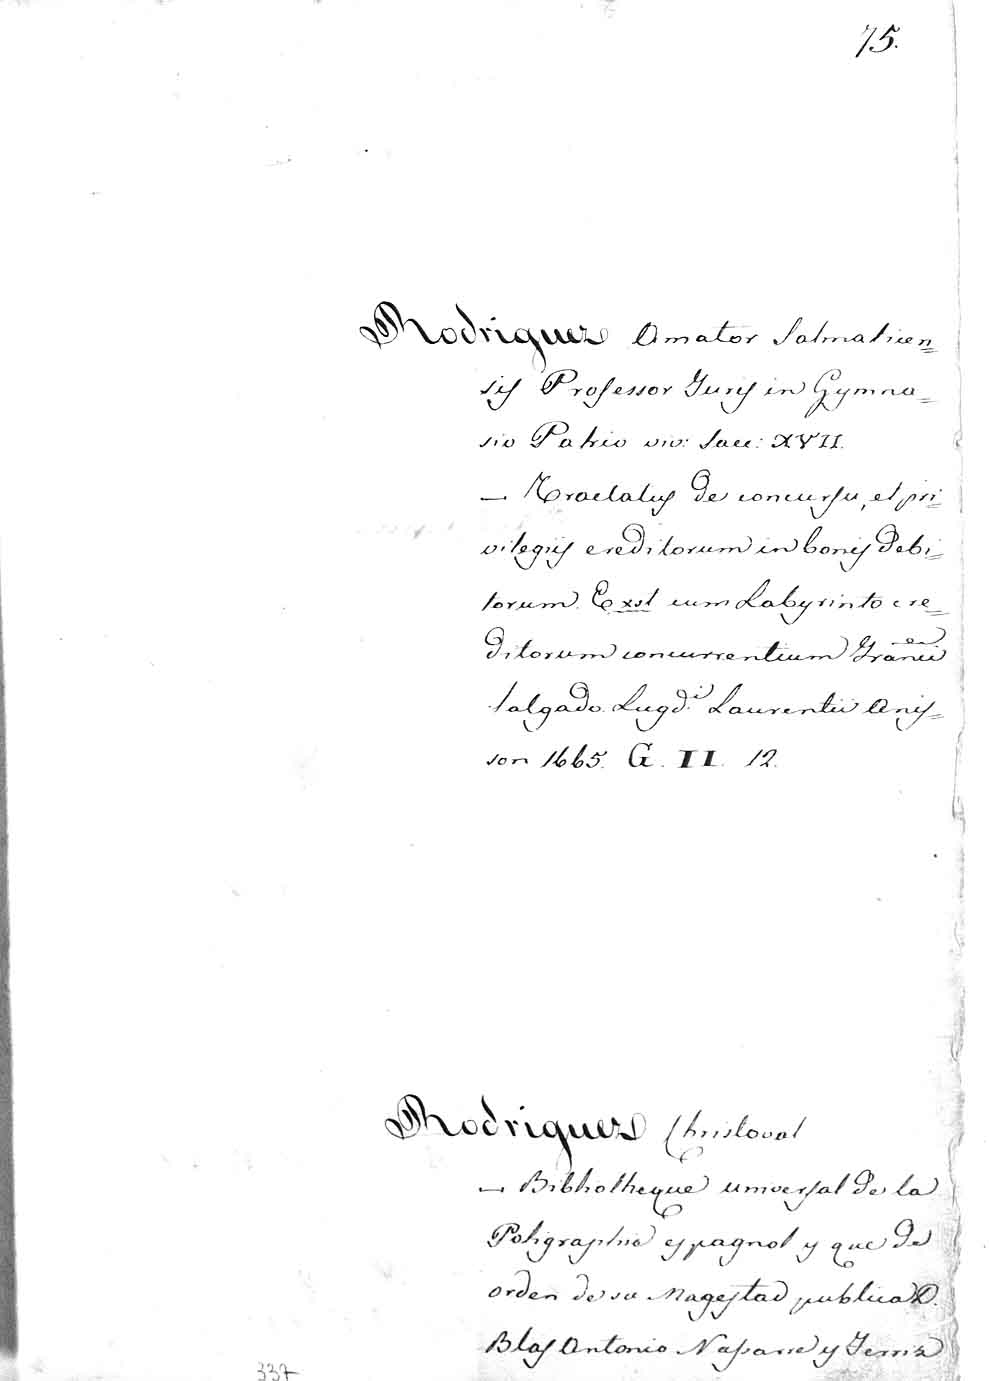 75.
Rodriguez Amator Salmaticen=
sis Professor Juris in Gymna=
sio Patrio viv: Saec: XVII.
— Tractatus de concursu, et pri=
vilegiis creditorum in bonis debi=
torum. Exst cum Labyrinto cre=
ditorum concurrentium Francisci
Salgado. Lugdi. Laurentii Anis=
son 1665. G. II. 12.
Rodriguez Christoval
— Bibliotheque universal de la
Poligraphia espagnol y que de
orden de su Magestad publica D.
Blas Antonio Nassarre y Ferriz
337